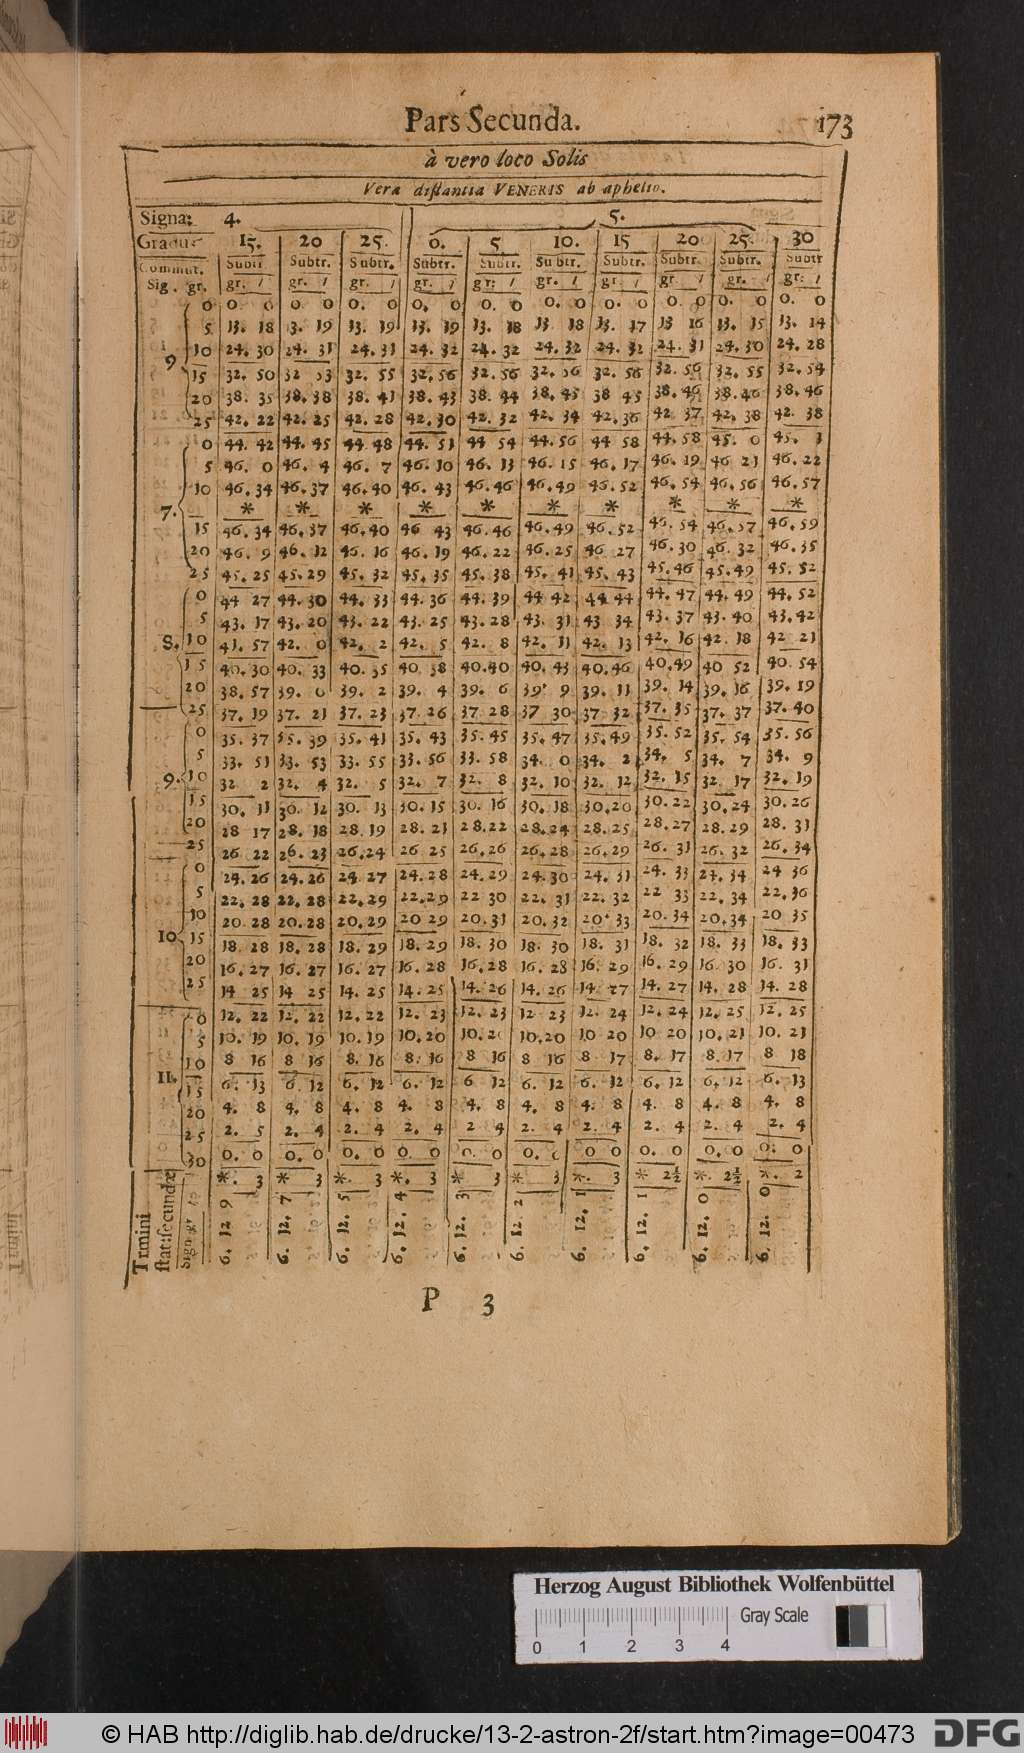 Pars Secunda. 173
à vero loco Solis
Vera distantia VENERIS ab aphelio.
Signa: 4. 5.
Gradus 15. 20 25. 0. 5 10. 15 20 25. 30
Commut. Subtr. Subtr. Subtr. Subtr. Subtr. Subtr. Subtr. Subtr. Subtr. Subtr
Sig. gr. gr. / gr. / gr. / gr. / gr: / gr. / gr: / gr / gr. / gr: /
0 0. 0 0 0 0. 0 0, 0 0. 0 0, 0 0. 0 0. 0 0. 0 0. 0
5 13. 18 3. 19 13. 19 13. 19 13. 18 13 18 13. 17 13 16 13, 15 13. 14
10 24. 30 24. 31 24. 31 24. 32 24. 32 24. 32 24. 32 24. 31 24. 30 24. 28
9
15 32. 50 32 53 32. 55 32, 56 32. 56 32. 56 32. 56 32. 56 32, 55 32, 54
20 38. 35 38, 38 38. 41 38. 43 38. 44 38, 45 38 45 38, 46 38. 46 38, 46
25 42, 22 42. 25 42. 28 42, 30 42. 32 42. 34 42, 36 42 37 42, 38 42. 38
0 44. 42 44. 45 44 48 44. 51 44 54 44. 56 44 58 44, 58 45. 0 45. 1
5 46. 0 46. 4 46. 7 46. 10 46. 13 46. 15 46, 17 46. 19 46 21 46. 22
10 46. 34 46, 37 46. 40 46. 43 46. 46 46, 49 46. 52 46, 54 46, 56 46, 57
7. * * * * * * * * * *
15 46. 34 46, 37 46, 40 46 43 46. 46 46, 49 46. 52 46, 54 46, 57 46, 59
20 46. 9 46. 12 46. 16 46. 19 46. 22 46. 25 46 27 46. 30 46. 32 46. 35
25 45. 25 45. 29 45. 32 45. 35 45. 38 45. 41 45. 43 45. 46 45. 49 45. 52
0 44 27 44. 30 44. 33 44. 36 44. 39 44 42 44 44 44. 47 44. 49 44, 52
5 43. 17 43, 20 43. 22 43. 25 43. 28 43. 31 43 34 43. 37 43. 40 43, 42
8. 10 41. 57 42. 0 42, 2 42, 5 42. 8 42, 11 42. 13 42, 16 42. 18 42 21
15 40. 30 40. 33 40. 35 40. 38 40. 40 40. 43 40, 46 40, 49 40 52 40. 54
20 38. 57 39. 0 39. 2 39. 4 39. 6 39. 9 39. 11 39. 14 39, 16 39. 19
25 37. 19 37. 21 37. 23 37. 26 37. 28 37 30 37. 32 37. 35 37. 37 37. 40
0 35. 37 35. 39 35. 41 35, 43 35. 45 35, 47 35, 49 35. 52 35. 54 35. 56
5 33. 51 33. 53 33. 55 33. 56 33. 58 34. 0 34. 2 34, 5 34. 7 34. 9
9. 10 32 2 32, 4 32. 5 32, 7 32. 8 32, 10 32, 12 32, 15 32. 17 32, 19
15 30, 11 30. 12 30. 13 30. 15 30. 16 30, 18 30, 20 30. 22 30, 24 30. 26
20 28 17 28. 18 28. 19 28. 21 28. 22 28. 24 28. 25 28. 27 28. 29 28. 31
25 26. 22 26. 23 26, 24 26 25 26, 26 26, 28 26, 29 26. 31 26. 32 26, 34
0 24. 26 24. 26 24. 27 24. 28 24. 29 24. 30 24. 31 24. 33 24, 34 24 36
5 22, 28 22, 28 22, 29 22, 29 22 30 22, 31 22, 32 22 33 22, 34 22, 36
10 20. 28 20. 28 20, 29 20 29 20. 31 20, 32 20. 33 20. 34 20, 34 20 35
10 15 18. 28 18. 28 18. 29 18. 29 18. 30 18. 30 18. 31 18. 32 18. 33 18, 33
20 16, 27 16. 27 16. 27 16. 28 16, 28 16. 28 16. 29 16. 29 16. 30 16. 31
25 14 25 14 25 14. 25 14. 25 14. 26 14. 26 14. 27 14. 27 14, 28 14. 28
0 12, 22 12, 22 12, 22 12. 23 12. 23 12 23 12. 24 12, 24 12, 25 12, 25
5 10. 19 10, 19 10. 19 10, 20 10, 10, 20 10 20 10 20 10, 21 10. 21
10 8 16 8 16 8. 16 8. 16 8 16 8 16 8. 17 8, 17 8. 17 8 18
11. 15 6. 13 6 12 6, 12 6. 12 6 12 6. 12 6. 12 6, 12 6, 12 6. 13
20 4. 8 4, 8 4. 8 4. 8 4, 8 4, 8 4. 8 4. 8 4. 8 4, 8
25 2. 5 2. 4 2. 4 2, 4 2 4 2. 4 2. 4 2. 4 2. 4 2. 4
30 0. 0 0, 0 0, 0 0. 0 0. 0 0. 0 0 0. 0 0, 0 0. 0
Trmini stat: secundæ Sign gr * 3 * 3 *. 3 *. 3 * 3 * 3 *. 3 * 2½ *. 2½ *. 2
6. 12 9 6. 12, 7 6. 12. 5 6. 12, 4 6. 12. 3 6. 12. 2 6. 12. 1 6. 12. 1 6. 12. 0 6. 12. 0
P 3
Herzog August Bibliothek Wolfenbüttel
Gray Scale
0 1 2 3 4
© HAB http://diglib.hab.de/drucke/13-2-astron-2f/start.htm?image=00473 DFG